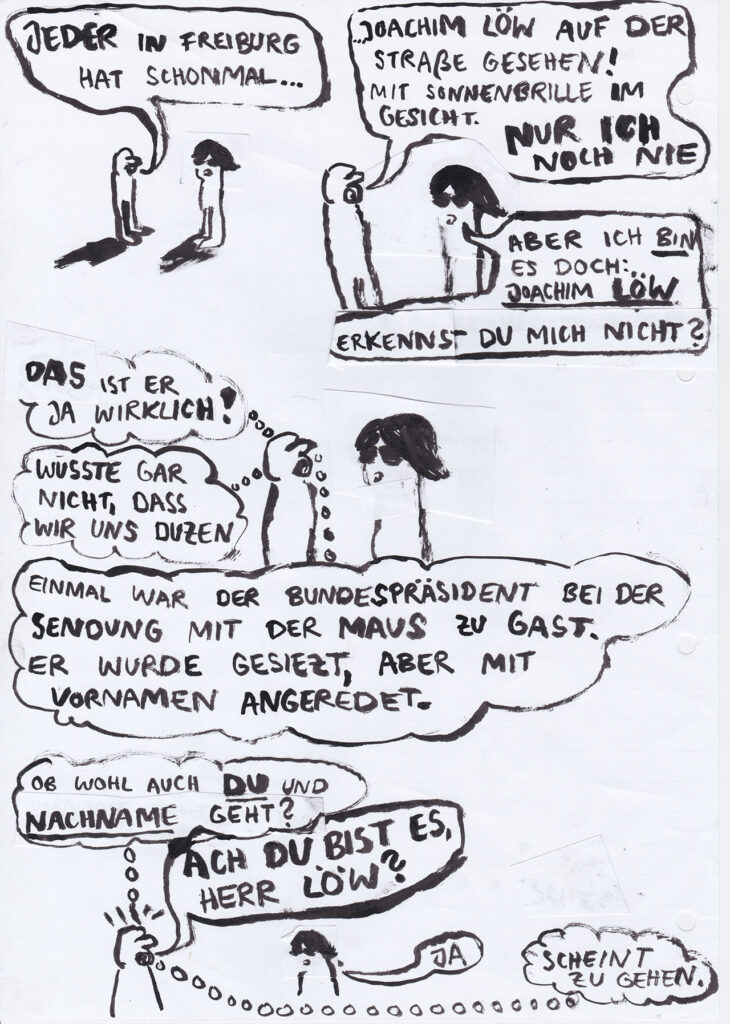 JEDER IN FREIBURG
HAT SCHONMAL...
...JOACHIM LÖW AUF DER
STRAßE GESEHEN!
MIT SONNENBRILLE IM
GESICHT.
NUR ICH
NOCH NIE
ABER ICH BIN
ES DOCH:
JOACHIM LÖW
ERKENNST DU MICH NICHT?
DAS IST ER
JA WIRKLICH!
WUSSTE GAR
NICHT, DASS
WIR UNS DUZEN
EINMAL WAR DER BUNDESPRÄSIDENT BEI DER
SENDUNG MIT DER MAUS ZU GAST.
ER WURDE GESIEZT, ABER MIT
VORNAMEN ANGEREDET.
OB WOHL AUCH DU UND
NACHNAME GEHT?
ACH DU BIST ES,
HERR LÖW?
JA
SCHEINT
ZU GEHEN.